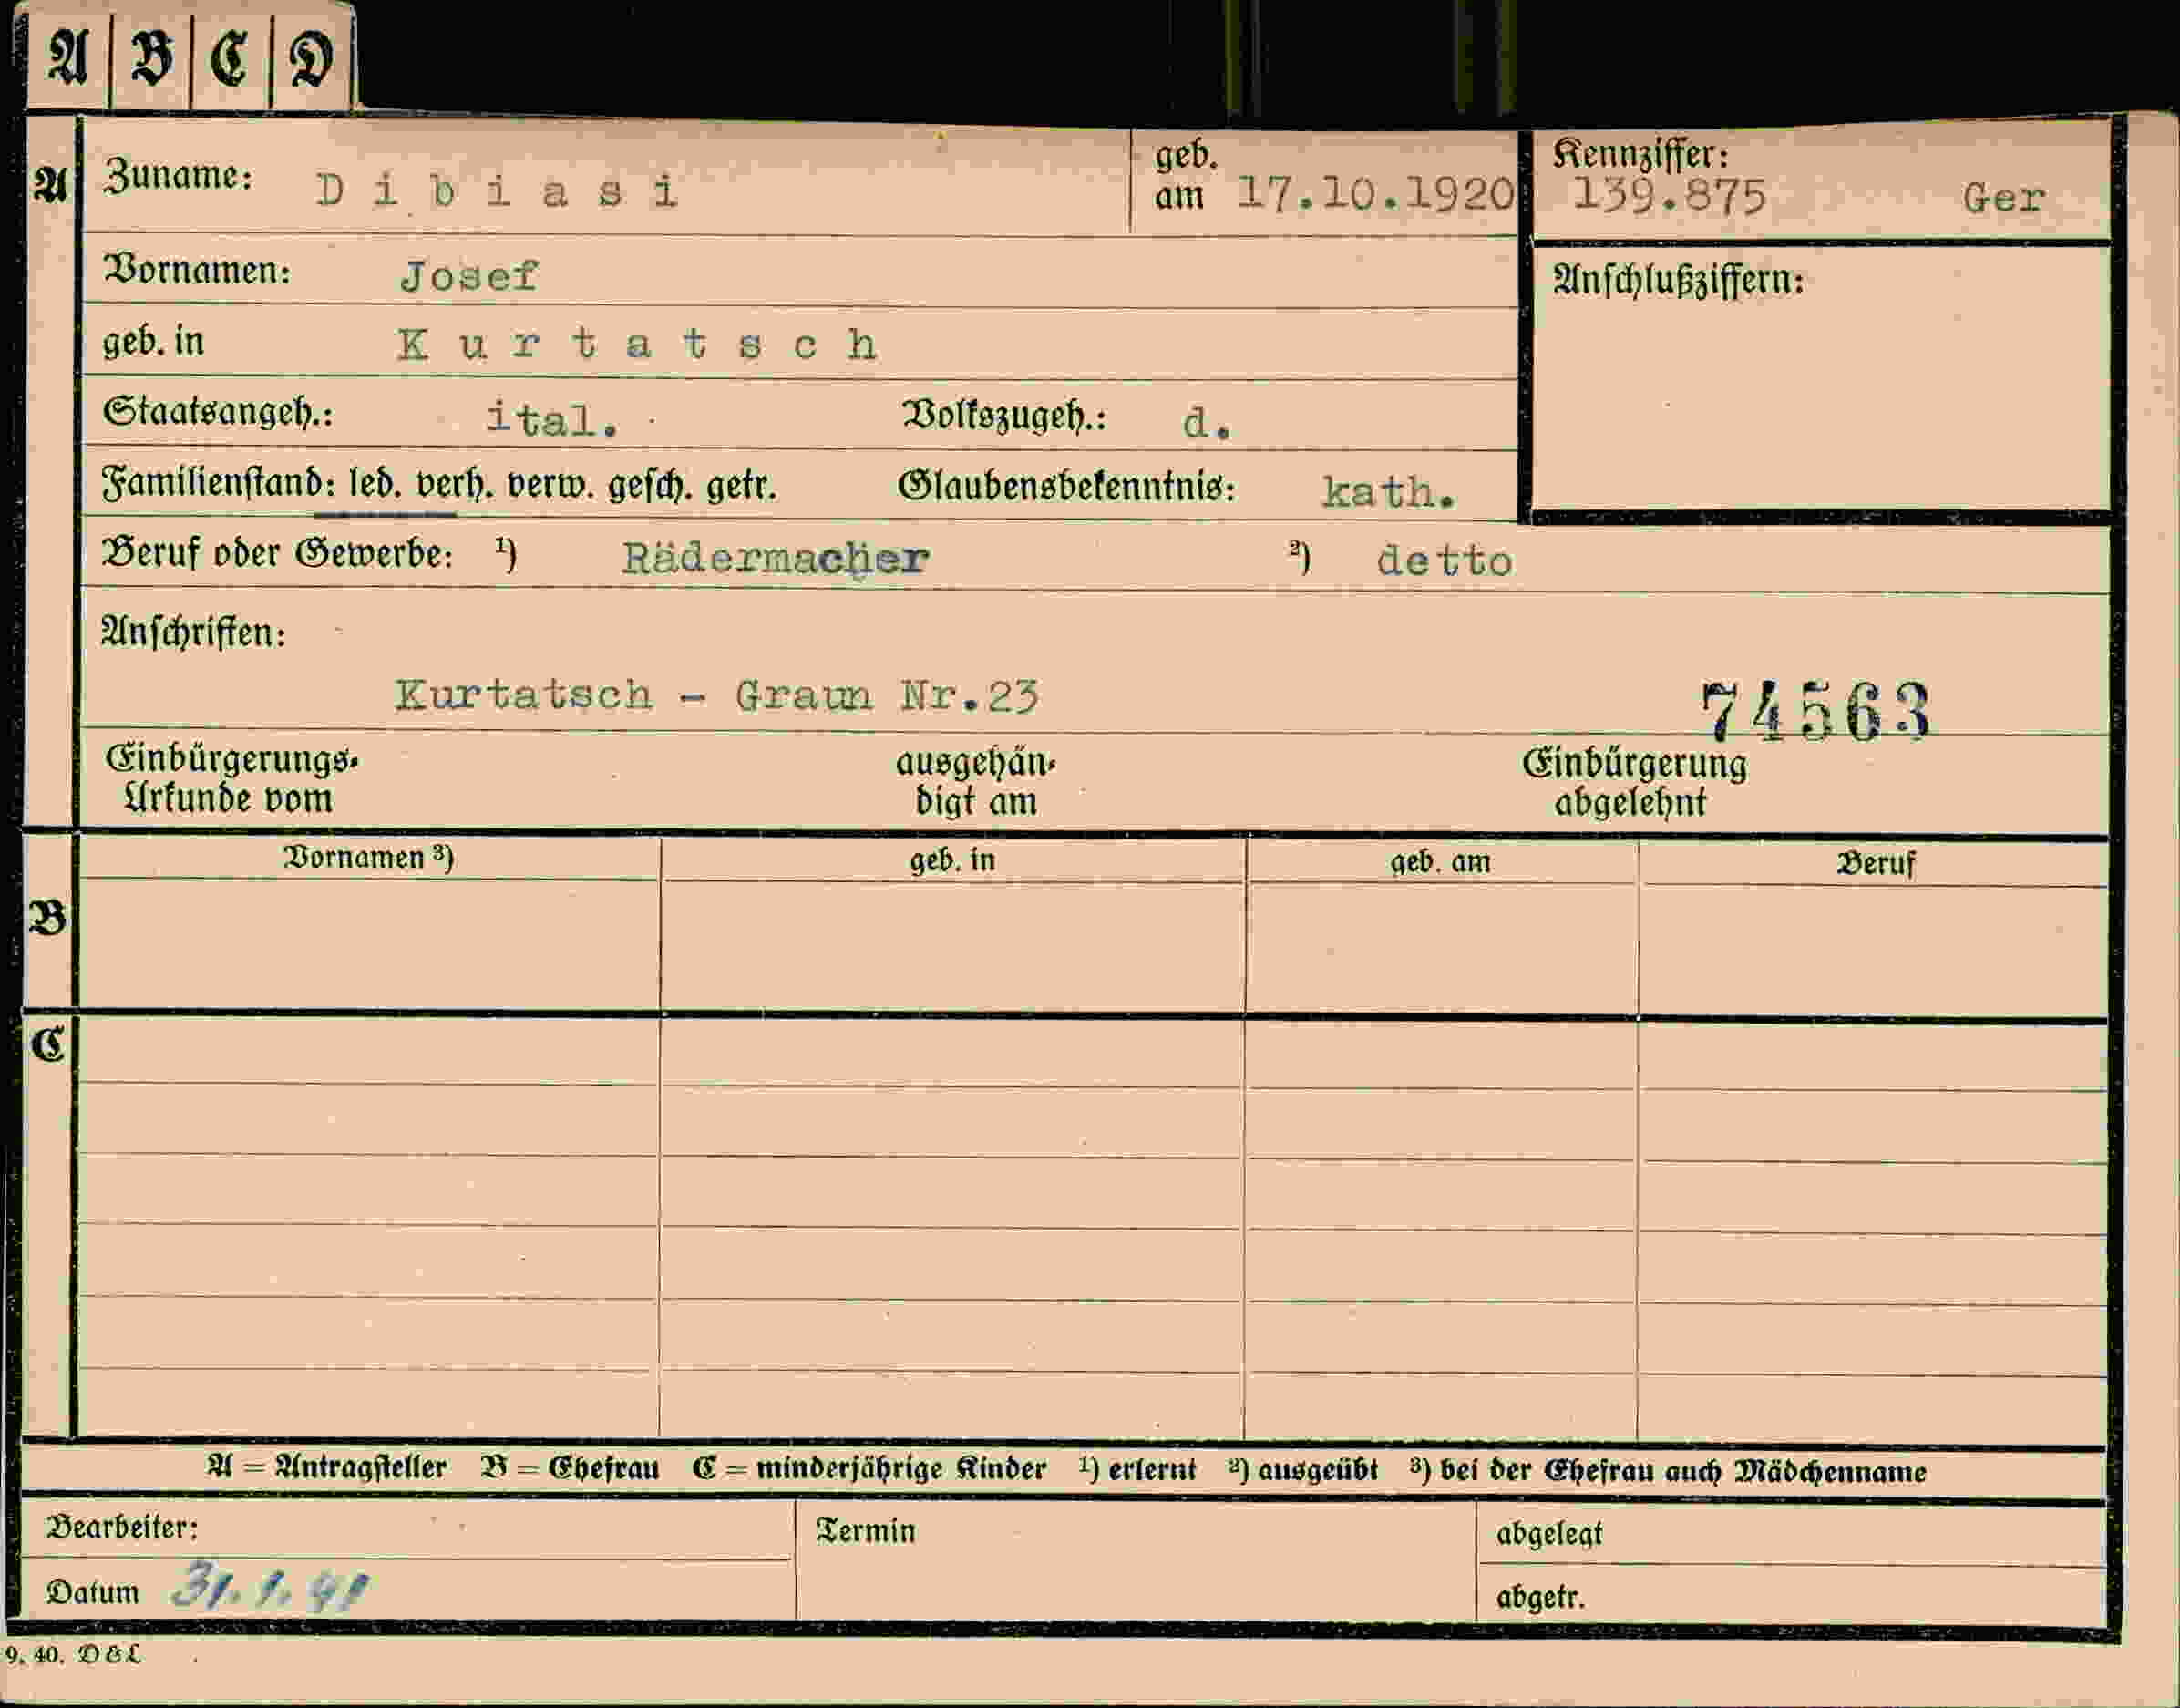 A B C D
A
Zuname: Dibiasi geb. am 17.10.1920 Kennziffer: 139.875 Ger
Vornamen: Josef Anschlußziffern:
geb. in Kurtatsch
Staatsangeh.: ital. Volkszugeh.: d.
Familienstand: led. verh. verw. gesch. getr. Glaubensbekenntnis: kath.
Beruf oder Gewerbe: ¹) Rädermacher ²) detto
Anschriften:
Kurtatsch - Graun Nr.23 74563
Einbürgerungs- ausgehän- Einbürgerung
Urkunde vom digt am abgelehnt
Vornamen ³) geb. in geb. am Beruf
B
C
A = Antragsteller B = Ehefrau C = minderjährige Kinder ¹) erlernt ²) ausgeübt ³) bei der Ehefrau auch Mädchenname
Bearbeiter: Termin abgelegt
Datum 31.1.41 abgetr.
9. 40. D & L